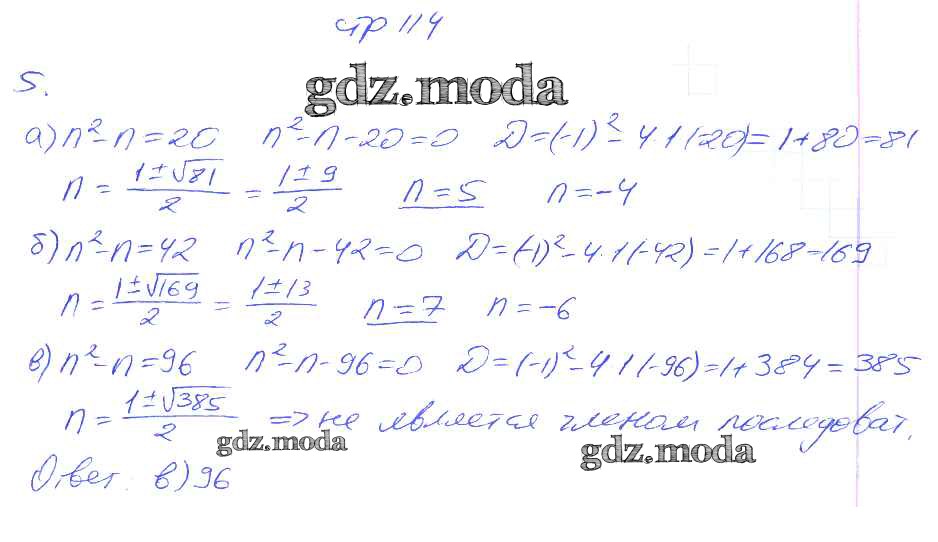 стр 114
5.
gdz.moda
а) n² - n = 20 n² - n - 20 = 0 D = (-1)² - 4·1(-20) = 1 + 80 = 81
n = (1 ± √81)/2 = (1 ± 9)/2 n = 5 n = -4
б) n² - n = 42 n² - n - 42 = 0 D = (-1)² - 4·1(-42) = 1 + 168 = 169
n = (1 ± √169)/2 = (1 ± 13)/2 n = 7 n = -6
в) n² - n = 96 n² - n - 96 = 0 D = (-1)² - 4·1(-96) = 1 + 384 = 385
n = (1 ± √385)/2 => не является членом последоват.
gdz.moda gdz.moda
Ответ: в) 96